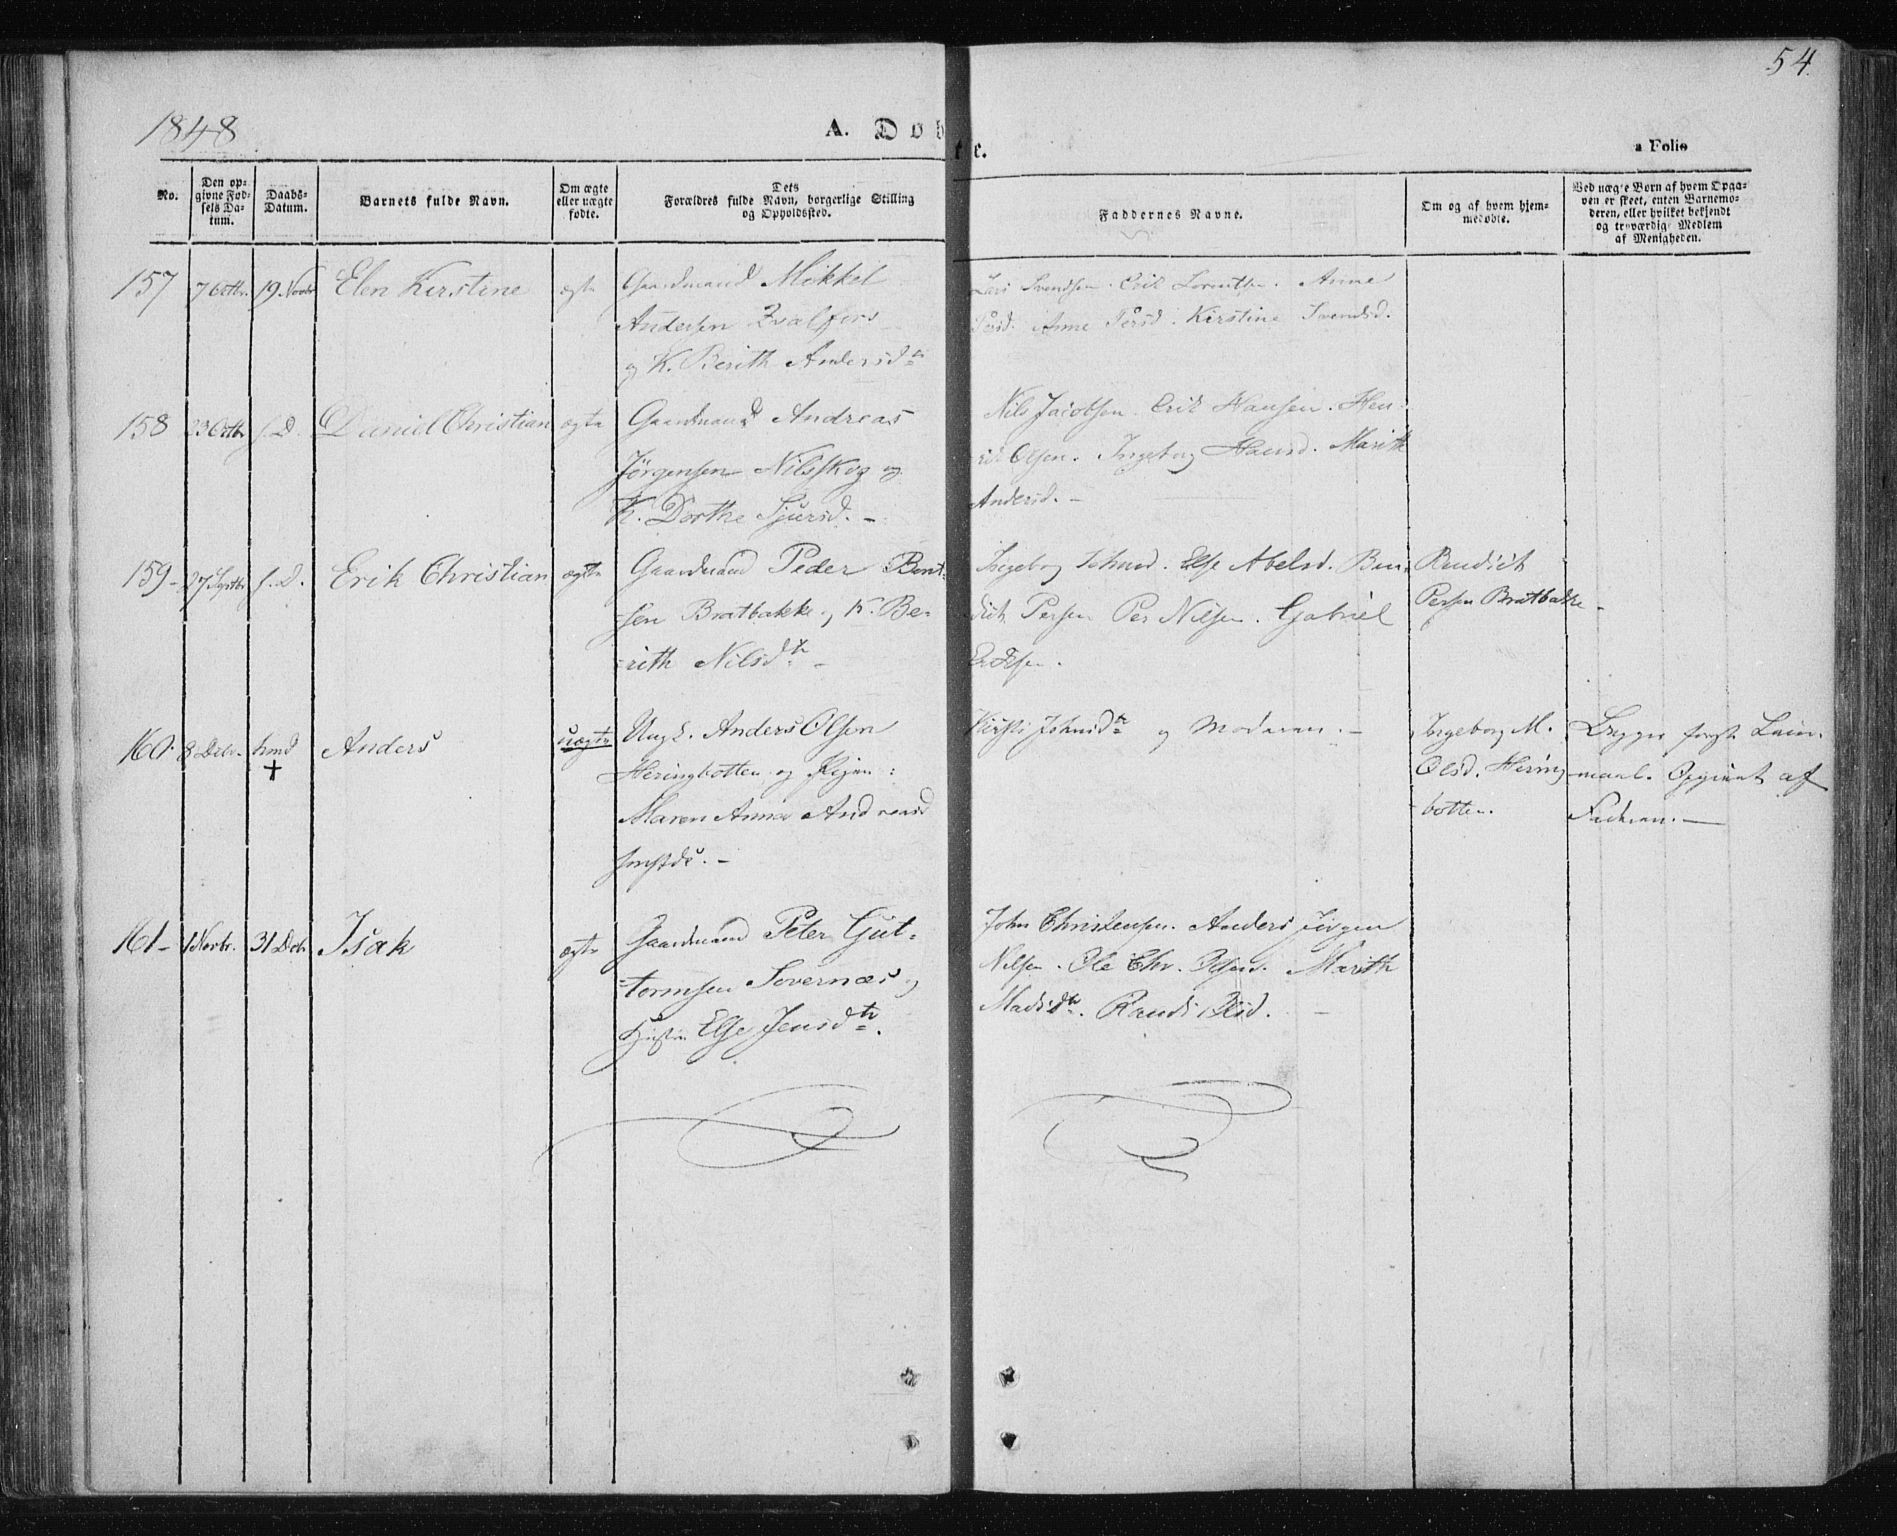 54.
1848
A. Døbte.
a Folio
No.
Den op-
givne Fød-
sels Da-
tum.
Daabs-
Datum.
Barnets fulde Navn.
Om ægte
eller uægte
fødte.
Dets
Forældres fulde Navn, borgerlige Stilling
og Opholdssted.
Faddernes Navne.
Om og af hvem hjem-
medøbte.
Ved uægte Børn af hvem Opga-
ven er skeet, enten Barnemo-
deren, eller hvilket bekjendt
og troværdig Medlem
af Menigheden.
157 7 Octbr. 19 Novbr Elen Kirstine ægte Gaardmand Mikkel
Andersen Kvalfors
og K. Berith Andersd.
Lars Svendsen. Erik Lorentsen. Anne
Persd. Anne Persd. Kirstine Svendsd.
158 23 Octbr s. D. Daniel Christian ægte Gaardmand Andreas
Jørgensen Nilsskog og
K. Dorthe Sjursd. -
Nils Jacobsen. Erik Hansen. Hen-
rik Olsen. Ingeborg Hansd. Marith
Andersd. -
159 - 27 Septbr s. D. Erik Christian ægte Gaardmand Peder Bent-
sen Bratbakke og K. Be-
rith Nilsdtr -
Ingeborg Johnsd. Else Abelsd. Ben-
dict Persen Per Nilsen. Gabriel
Bendict
Persen Bratbakke -
160. 8 Debr. hmd + Anders uægte Ungk. Anders Olsen
Heringbotten og Pigen:
Maren Anna Andreasd
sammesteds. -
Kirsti Johnsdtr og Moderen. -
Ingeborg M.
Olsd. Hering
botten.
Begges første Leier-
maal. Opgivet af
Faderen. -
161 - 1 Novbr. 31 Debr Isak ægte Gaardmand Peter Gut-
tormsen Sovernæs og
Hustru Else Jensdtr.
John Christensen. Anders Jørgen
Nilsen. Ole Chr. Olsen. Marith
Madsdtr. Randi Olsd. -